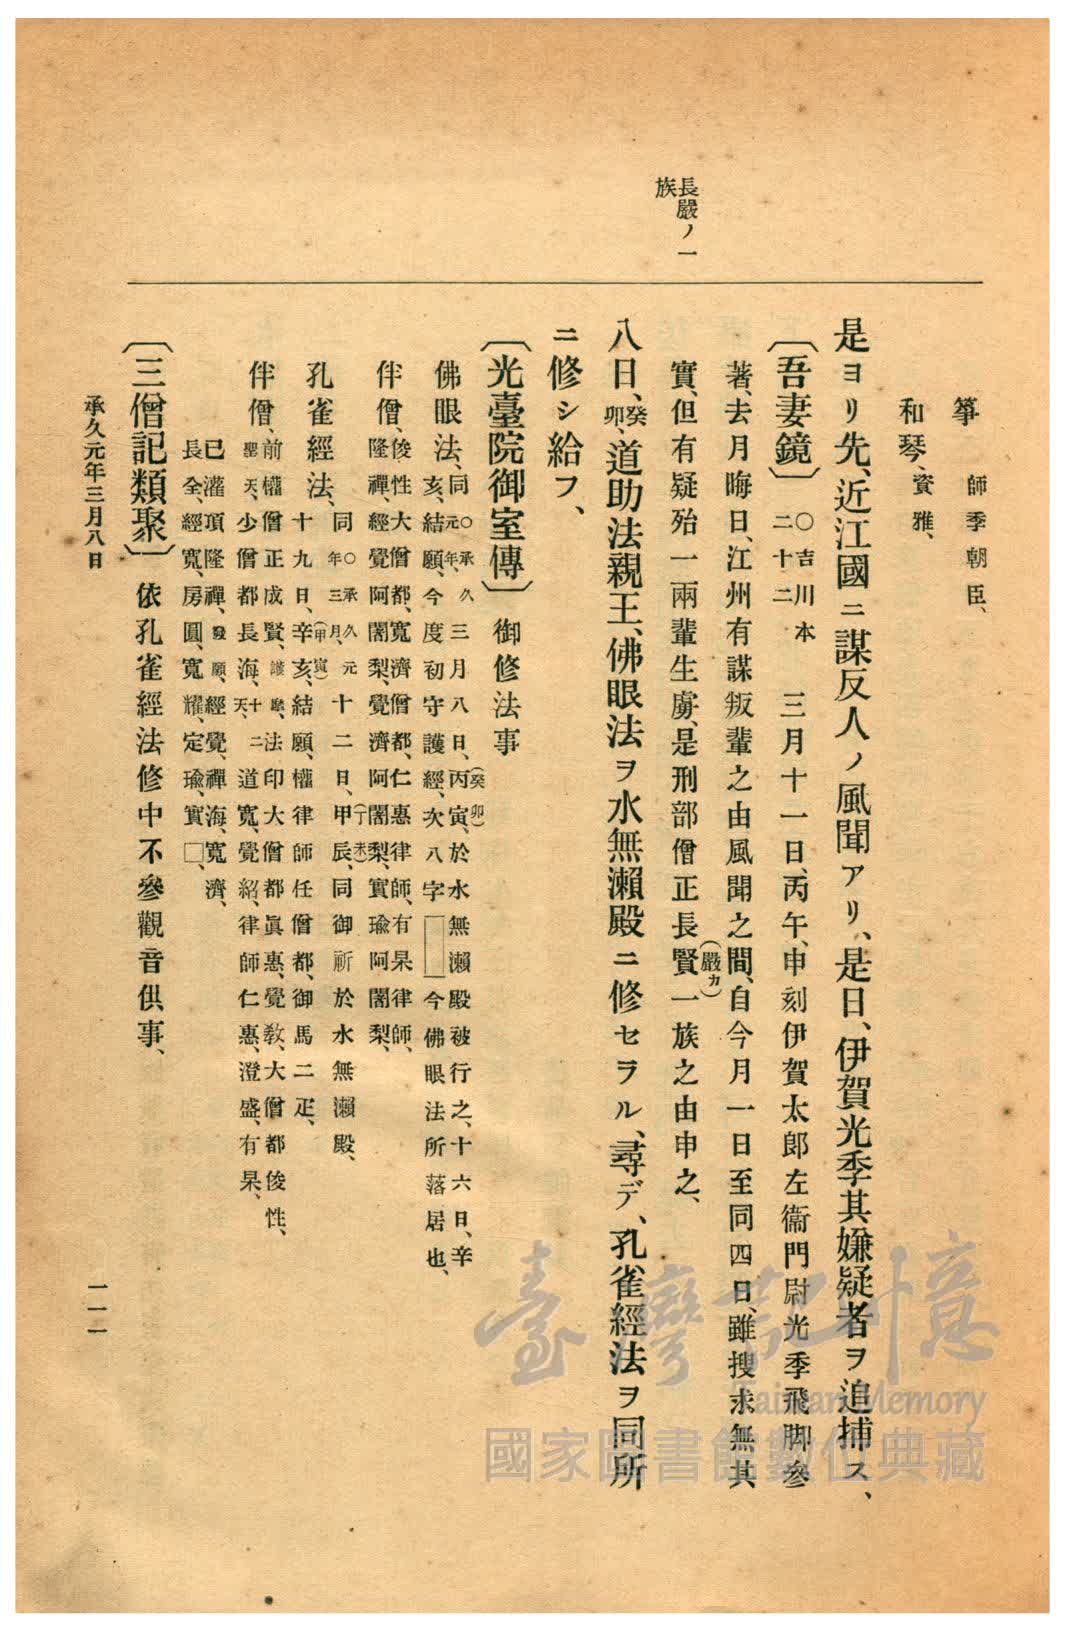 長嚴ノ一
族
箏　師季朝臣、
和琴、資雅、
是ヨリ先、近江國ニ謀反人ノ風聞アリ、是日、伊賀光季其嫌疑者ヲ追捕ス、
〔吾妻鏡〕○吉川本二十二　三月十一日、丙午、申刻伊賀太郎左衞門尉光季飛脚參
著、去月晦日、江州有謀叛輩之由風聞之間、自今月一日至同四日、雖搜求無其
實、但有疑殆一兩輩生虜、是刑部僧正長賢(嚴カ)一族之由申之、
八日、癸卯、道助法親王、佛眼法ヲ水無瀨殿ニ修セラル、尋デ、孔雀經法ヲ同所
ニ修シ給フ、
〔光臺院御室傳〕御修法事
佛眼法、同○承久元年、三月八日、丙寅(癸卯)、於水無瀨殿被行之、十六日、辛
亥、結願、今度初守護經、次八字□今佛眼法所落居也、
伴僧、俊性大僧都、寬濟僧都、仁惠律師、有杲律師、
隆禪、經覺阿闍梨、覺濟阿闍梨、實瑜阿闍梨、
孔雀經法、同○承久元年三月、十二日、甲辰(丁未)、同御祈於水無瀨殿、
十九日、辛亥(甲寅)、結願、權律師任僧都、御馬二疋、
伴僧、前權僧正成賢、護摩、法印大僧都眞惠、覺敎、大僧都俊性、
聖天、少僧都長海、十二天、道寬、覺紹、律師仁惠、澄盛、有杲、
已灌頂隆禪、發願、經覺、禪海、寬濟、
長全、經寬、房圓、寬耀、定瑜、實□、
〔三僧記類聚〕依孔雀經法修中不參觀音供事、
承久元年三月八日
一一一
臺灣記憶
Taiwan Memory
國家圖書館數位典藏